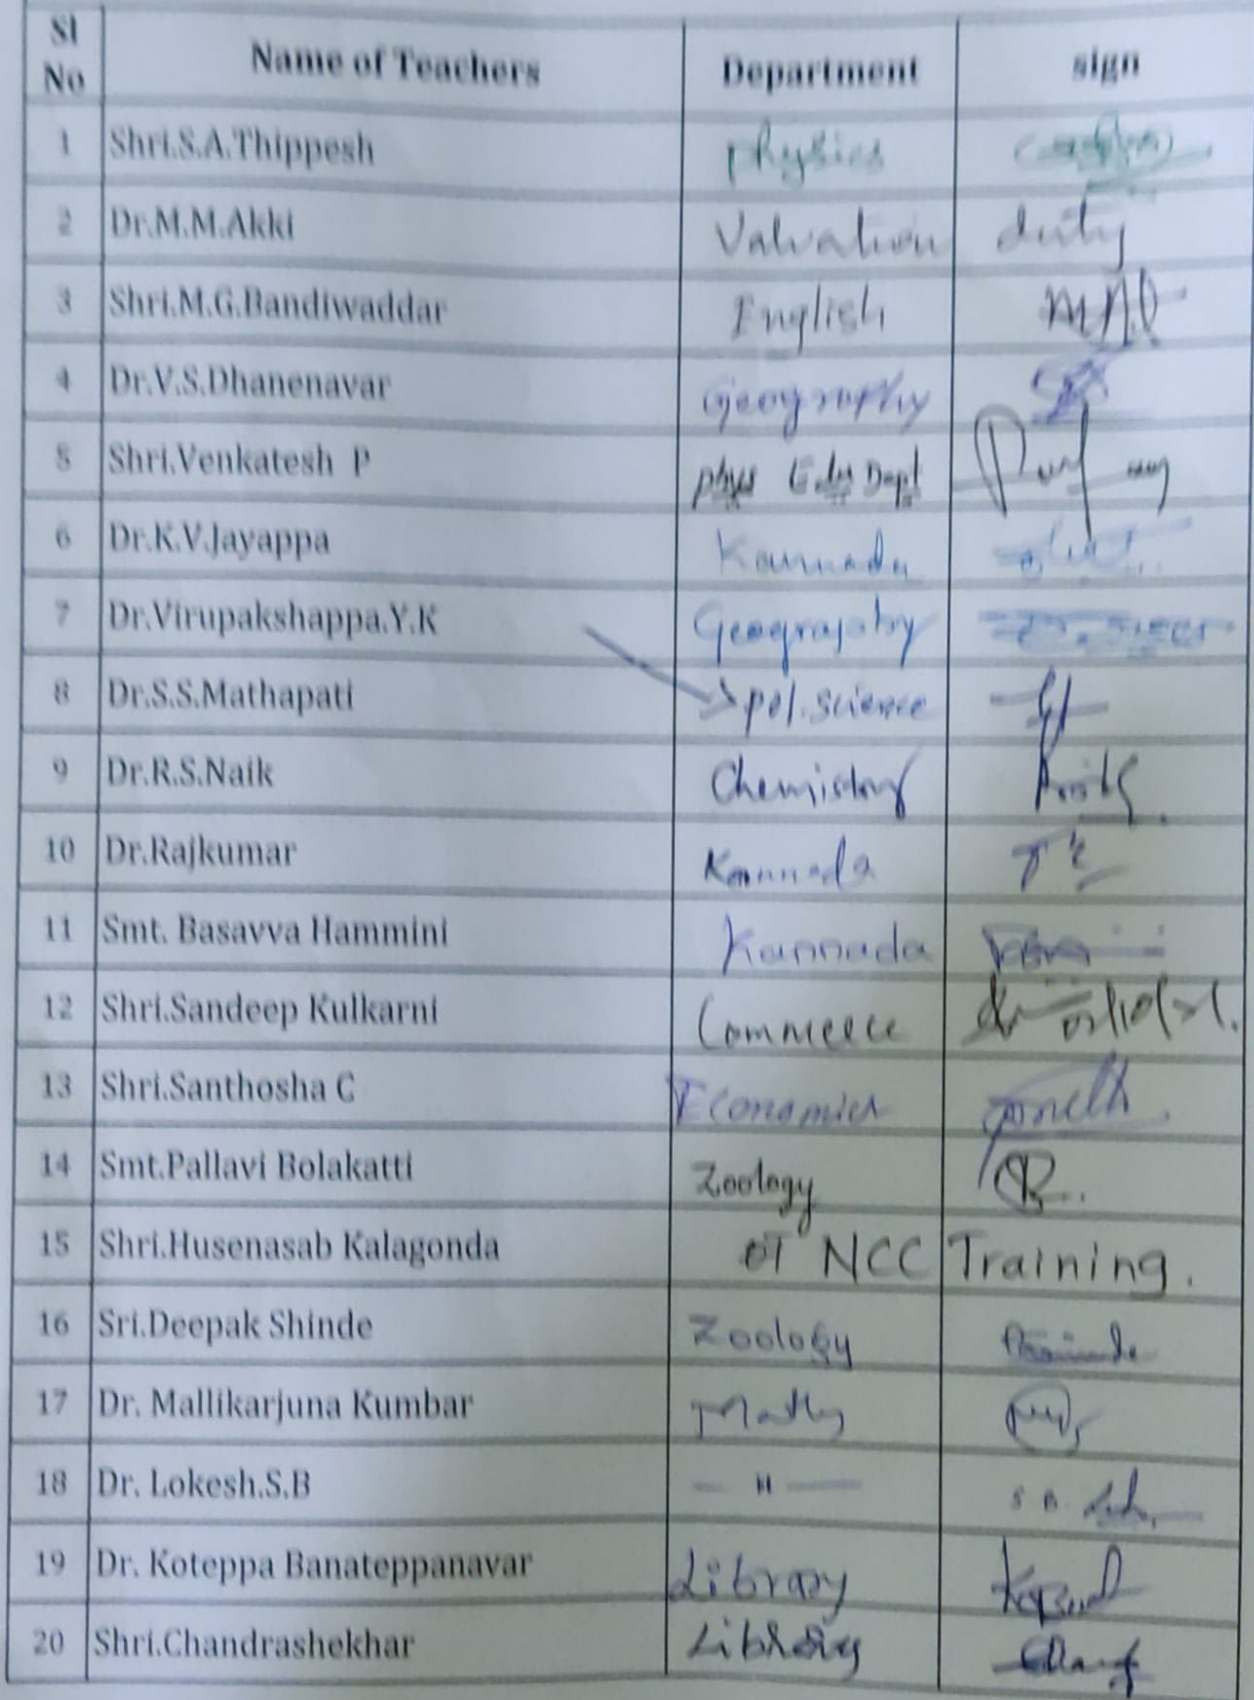 Sl No Name of Teachers Department sign
1 Shri.S.A.Thippesh Physics
2 Dr.M.M.Akki Valvation duty
3 Shri.M.G.Bandiwaddar English
4 Dr.V.S.Dhanenavar Geography
5 Shri.Venkatesh P phys Edu Dept
6 Dr.K.V.Jayappa Kannada
7 Dr.Virupakshappa.Y.K Geography
8 Dr.S.S.Mathapati pol.science
9 Dr.R.S.Naik Chemistry
10 Dr.Rajkumar Kannada
11 Smt. Basavva Hammini Kannada
12 Shri.Sandeep Kulkarni Commerce
13 Shri.Santhosha C Economics
14 Smt.Pallavi Bolakatti Zoology
15 Shri.Husenasab Kalagonda NCC Training.
16 Sri.Deepak Shinde Zoology
17 Dr. Mallikarjuna Kumbar Maths
18 Dr. Lokesh.S.B — " —
19 Dr. Koteppa Banateppanavar Library
20 Shri.Chandrashekhar Library